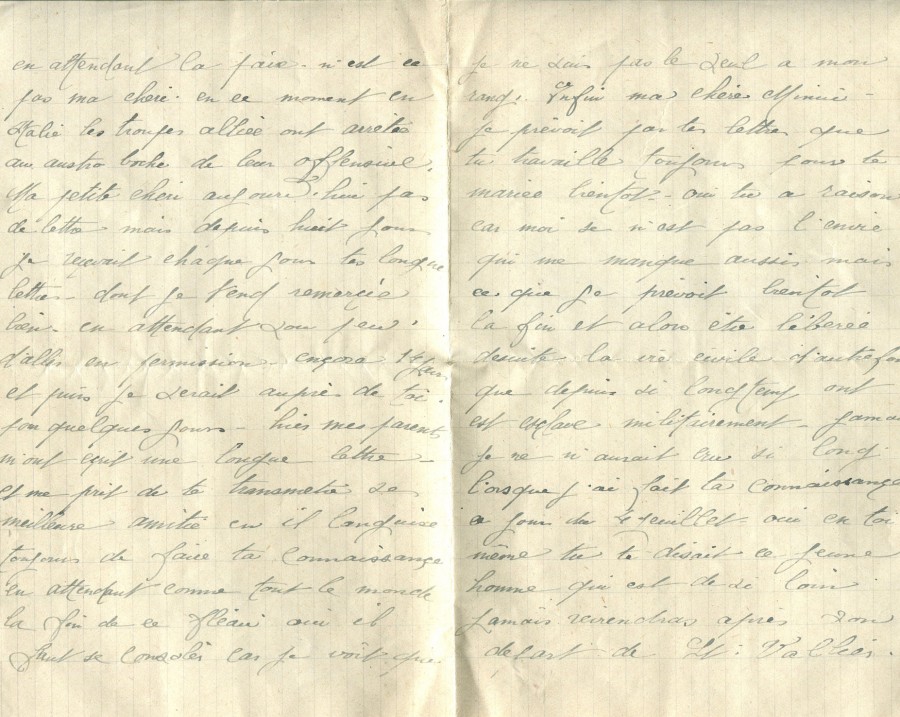 en attendant la paix. n'est ce
pas ma cheri. en ce moment en
Italie les troupes alliée ont arretée
aux austro boche de leur offensive.
Ma petite cheri aujourd'hui pas
de lettre mais depuis huit jours
je reçoit chaque jours tes longue
lettres - dont je t'end remerçie
bien - en attendant son peu
d'aller en permission - ençora jours
et puis je serait auprès de toi.
pour quelques jours - hier mes parents
m'ont ecrit une longue lettre -
et me prit de te transmetre ses
meilleure amitié en il languise
toujours de faire ta connaissançe
en attendant comme tout le monde
la fin de ce fléau oui il
faut se consolés car je voit que
je ne suis pas le seul a mon
rang. Enfin ma chère Mimie -
je prévoit par tes lettres que
tu travaille toujours pour te
mariée bientot - oui tu a raison
car moi se n'est pas l'envie
qui me manque aussis mais
ce que je prévoit bientot
la fin et alors être libérée
desuite la vie civile d'autrefois
que depuis si longtemps ont
est esclave militairement - jamais
je ne n'aurait cru si long
lorsque j'ai fait ta connaissançe
ce jour du 4 juillet - oui en toi
même tu te disait ce jeune
homme qui est de si loin
jamais reviendras après son
depart de St: Vallier.